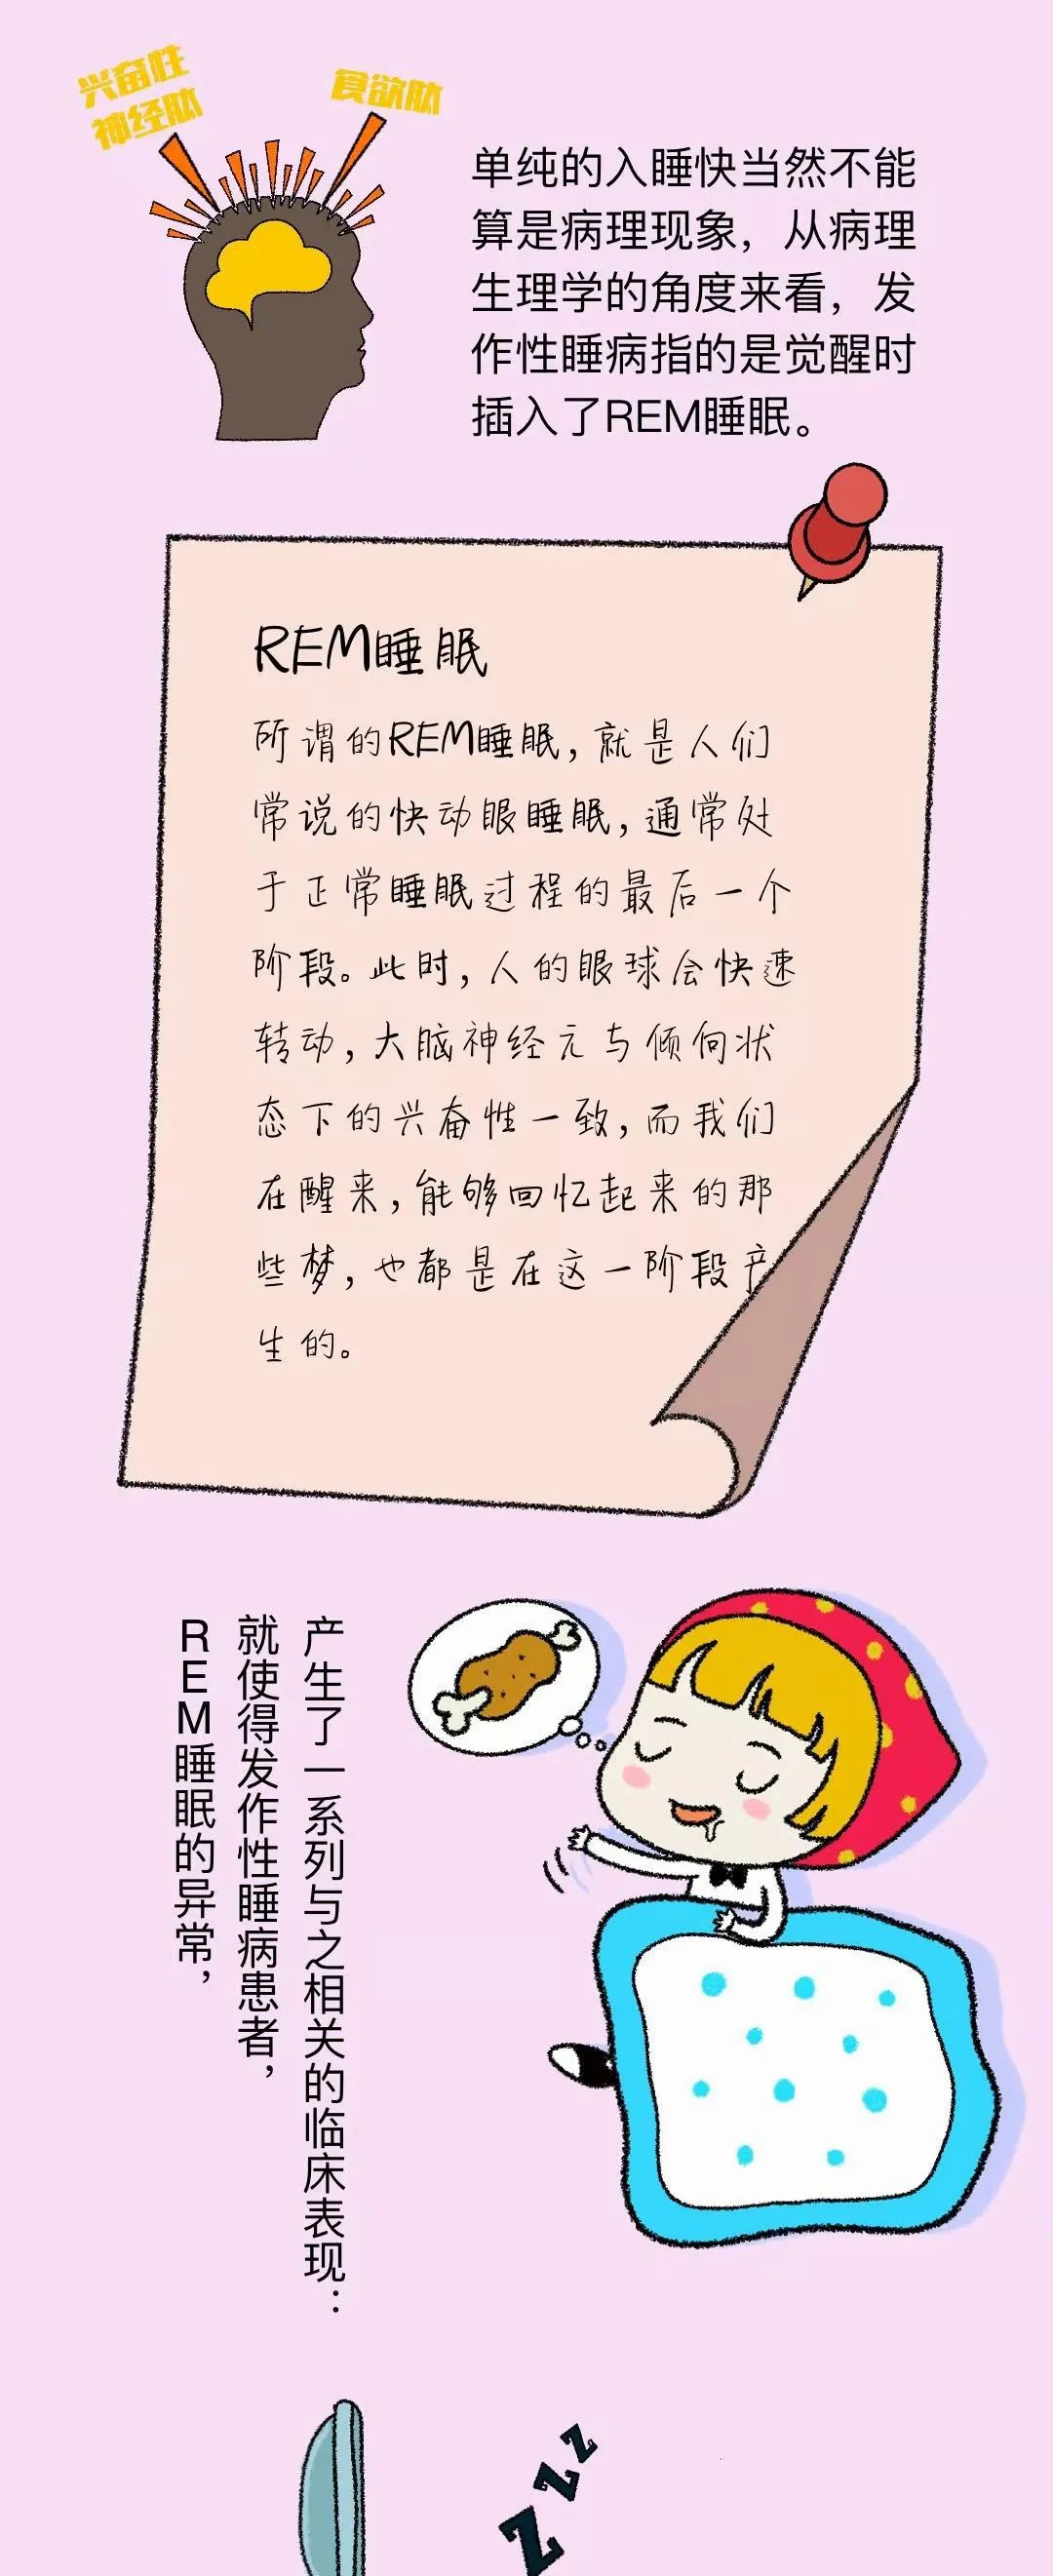 兴奋性
神经肽
食欲肽
单纯的入睡快当然不能
算是病理现象，从病理
生理学的角度来看，发
作性睡病指的是觉醒时
插入了REM睡眠。
REM睡眠
所谓的REM睡眠，就是人们
常说的快动眼睡眠，通常处
于正常睡眠过程的最后一个
阶段。此时，人的眼球会快速
转动，大脑神经元与倾向状
态下的兴奋性一致，而我们
在醒来，能够回忆起来的那
些梦，也都是在这一阶段产
生的。
REM睡眠的异常，
就使得发作性睡病患者，
产生了一系列与之相关的临床表现…
Z
Z
Z